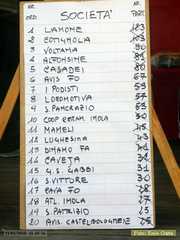 NR. NR.
ORD. SOCIETA' PART.
1 LAMONE 183
2 COTIGNOLA 93
3 VOLTANA 90
4 ALFONSINE 83
5 CASADEI 80
6 AVIS FO 67
7 I PODISTI 57
8 LOCOMOTIVA 57
9 S. PANCRAZIO 53
10 COOP CERAM. IMOLA 50
11 MAMELI 45
12 LUGHESINA 43
13 DINAMO FA
14 CAVEJA 31
15 G.S. GABBI 31
16 S. VITTORE 30
17 PAVA FO 28
18 ATL. IMOLA 27
19 S. PATRIZIO 25
20 AVIS CASTELBOLOGNESE 25